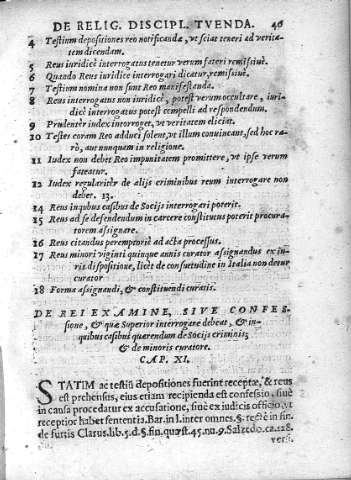 DE RELIG. DISCIPL. TVENDA. 46
4 Testium depositiones reo notificandæ, vt sciat teneri ad verita-
tem dicendam.
5 Reus iuridicè interrogatus tenetur verum fateri remissiuè.
6 Quando Reus iuridice interrogari dicatur, remissiuè.
7 Testium nomina non sunt Reo manifestanda.
8 Reus interrogatus non iuridicè, potest verum occultare, iuri-
dicè interrogatus potest compelli ad respondendum.
9 Prudenter iudex interroget, vt veritatem eliciat.
10 Testes coram Reo adduci solent, vt illum conuincant, sed hoc ra-
rò, aut nunquam in religione.
11 Iudex non debet Reo impunitatem promittere, vt ipse verum
fateatur.
12 Iudex regulariter de alijs criminibus reum interrogare non
debet. 13.
14 Reus inquibus casibus de Socijs interrogari poterit.
15 Reus ad se defendendum in carcere constitutus poterit procura-
torem assignare.
16 Reus citandus peremptoriè ad acta processus.
17 Reus minori viginti quinque annis curator assignandus ex iu-
ris dispositione, licèt de consuetudine in Italia non detur
curator
18 Forma assignandi, & constituendi curatis.
DE REI EXAMINE, SIVE CONFES-
sione, & quæ Superior interrogare debeat, & in-
quibus casibus quærendum de Socijs criminis;
& de minoris curatore.
CAP. XI.
STATIM ac testiū depositiones fuerint receptæ, & reus
est prehensus, eius etiam recipienda est confessio, siuè
in causa procedatur ex accusatione, siuè ex iudicis officio, vt
receptior habet sententia. Bar. in l. inter omnes. §. rectè in fin.
de furtis Clarus. lib. 5. d. §. fin. quæst. 45. nu. 9. Salzedo. ca. 128.
versi.